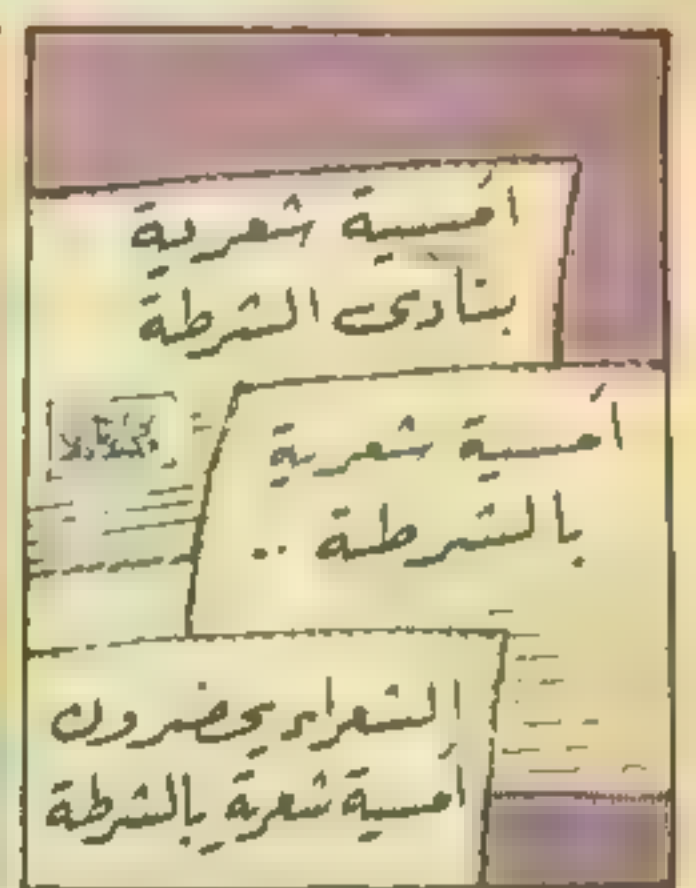 أمسية شعرية
بنادى الشرطة
أمسية شعرية
بالشرطة ..
الشعراء يحضرون
أمسية شعرية بالشرطة